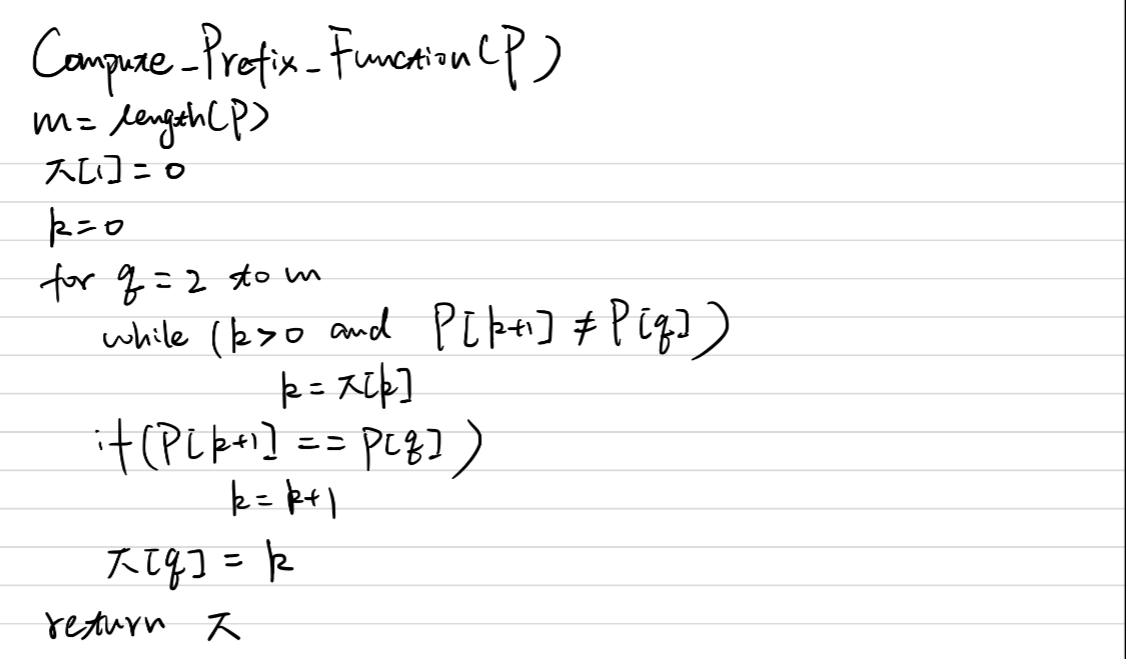 Compute_Prefix_Function(P)
m = length(P)
π[1] = 0
k = 0
for q = 2 to m
while (k>0 and P[k+1] ≠ P[q])
k = π[k]
if(P[k+1] == P[q])
k = k+1
π[q] = k
return π